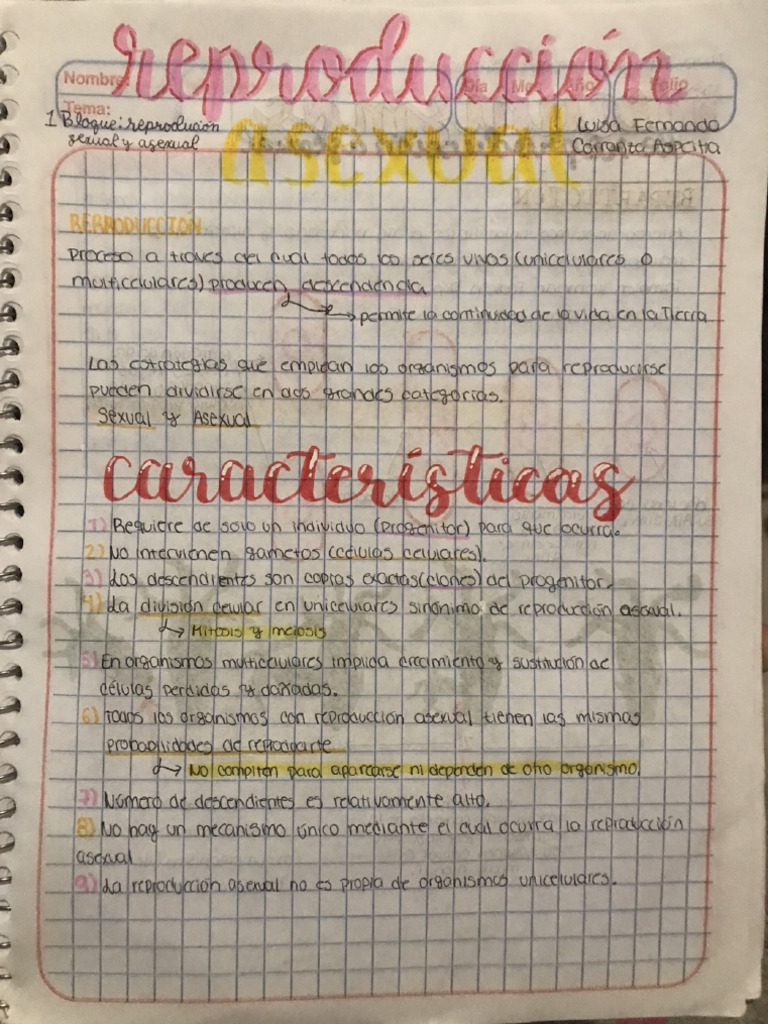 reproducción
Nombre:
Día Mes Año Folio
Tema:
1 Bloque: reprodución
sexual y asexual
Luisa Fernanda
Carranza
asexual
REPRODUCCIÓN
Proceso a través del cual todos los seres vivos (unicelulares o
multicelulares) producen descendencia
permite la continuidad de la vida en la Tierra
Las estrategias que emplean los organismos para reproducirse
pueden dividirse en dos grandes categorías.
Sexual y Asexual
características
1) Requiere de solo un individuo (progenitor) para que ocurra.
2) No intervienen gametos (células celulares).
3) Los descendientes son copias exactas (clones) del progenitor.
4) La división celular en unicelulares sinónimo de reproducción asexual.
Mitosis y meiosis
5) En organismos multicelulares implica crecimiento y sustitución de
células perdidas y dañadas.
6) Todos los organismos con reproducción asexual tienen las mismas
probabilidades de
No compiten para aparearse ni dependen de otro organismo.
7) Número de descendientes es relativamente alto.
8) No hay un mecanismo único mediante el cual ocurra la reproducción
asexual
9) La reproducción asexual no es propia de organismos unicelulares.